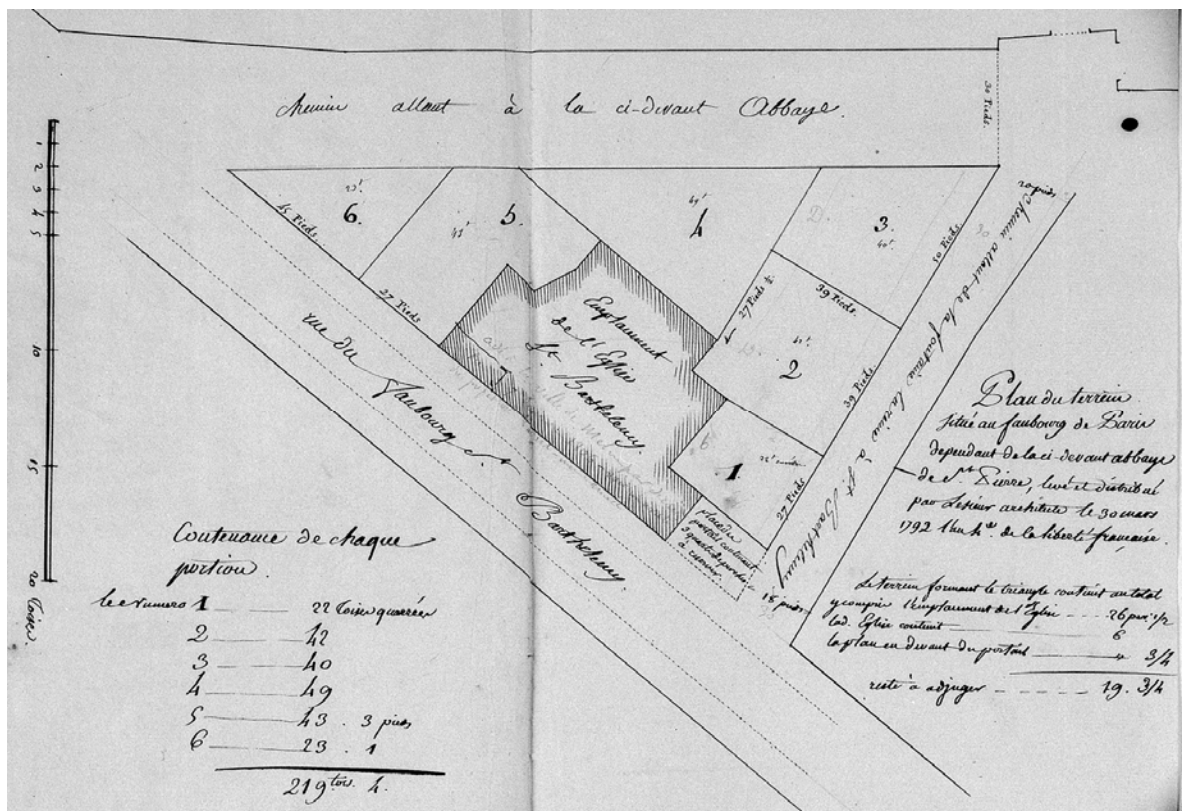 chemin allant à la ci-devant Abbaye.
30 Pieds.
1
2
3
4
5
10
15
20 Toises.
23t
6.
45 Pieds.
43t
5.
27 Pieds
49t
4
D.
3.
40t.
27 Pieds ½
39 Pieds.
50 Pieds.
42t.
2
39 Pieds
1.
27 Pieds
20 pieds
chemin allant de la fontaine à St Barthelemy
18 pieds
Emplacement
de l'Eglise
St. Barthelemy.
place du
portail contenant
à reserver.
rue du Faubourg St Barthelemy
Plan du terrein
situé au faubourg de Paris
dependant de la ci-devant abbaye
de St Pierre, levé et distribué
par Lesieur architecte le 30 mars
1792 l'an 4e de la liberté française.
Le terrein formant le triangle contient au total
y compris l'emplacement de l'Eglise 26 per. 1/2
Lad. Eglise contient 6
la place en devant du portail " 3/4
reste à adjuger 19. 3/4
Contenance de chaque
portion.
le Numero 1 22 Toises quarrées
2 42
3 40
4 49
5 43. 3 pieds
6 23. 1
219 tois. 4.